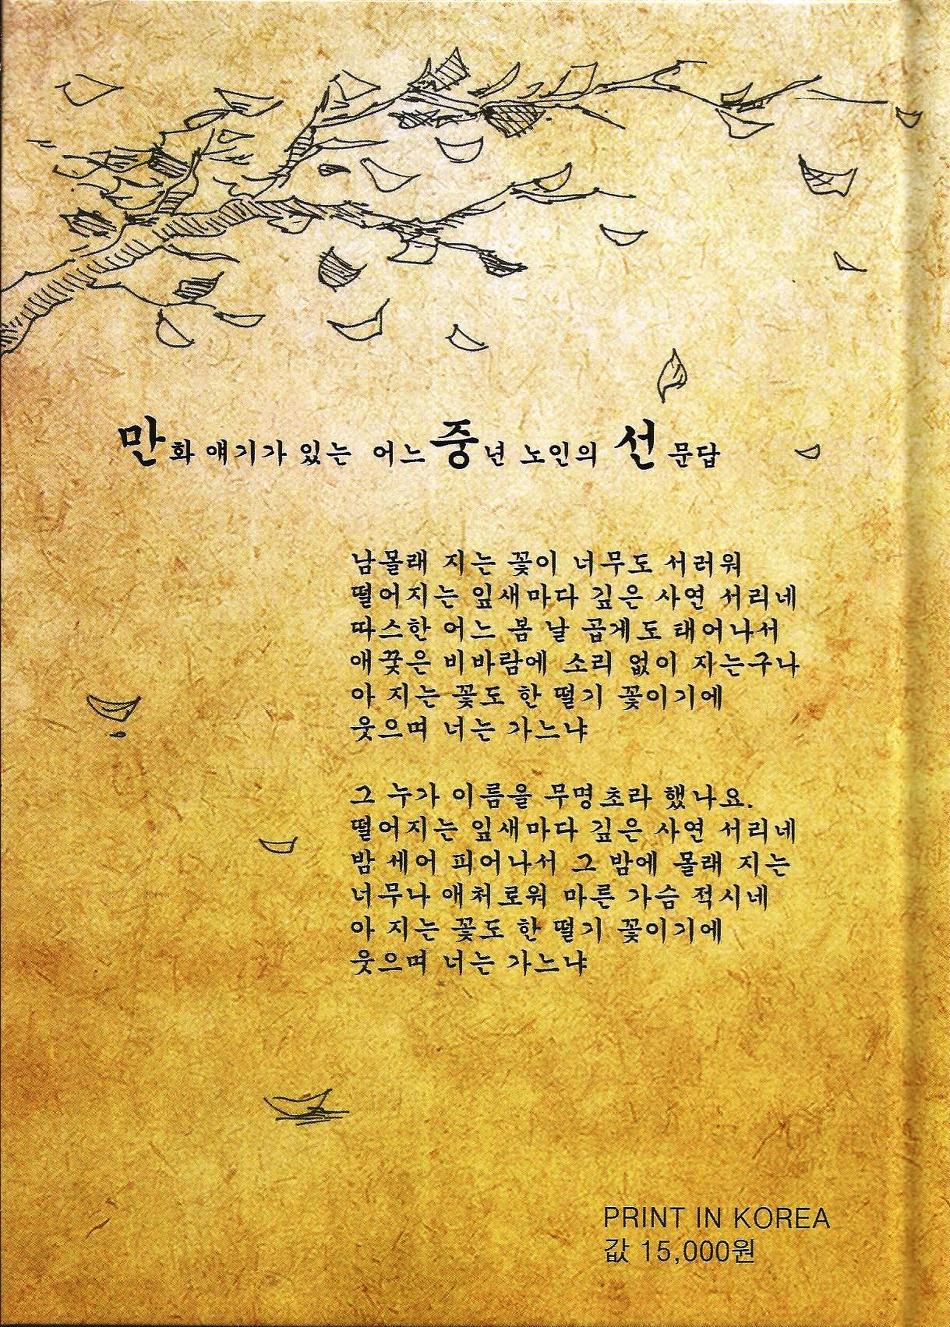 만화 얘기가 있는 어느 중년 노인의 선문답
남몰래 지는 꽃이 너무도 서러워
떨어지는 잎새마다 깊은 사연 서리네
따스한 어느 봄 날 곱게도 태어나서
애꿎은 비바람에 소리 없이 지는구나
아 지는 꽃도 한 떨기 꽃이기에
웃으며 너는 가느냐
그 누가 이름을 무명초라 했나요.
떨어지는 잎새마다 깊은 사연 서리네
밤 세어 피어나서 그 밤에 몰래 지는
너무나 애처로워 마른 가슴 적시네
아 지는 꽃도 한 떨기 꽃이기에
웃으며 너는 가느냐
PRINT IN KOREA
값 15,000원